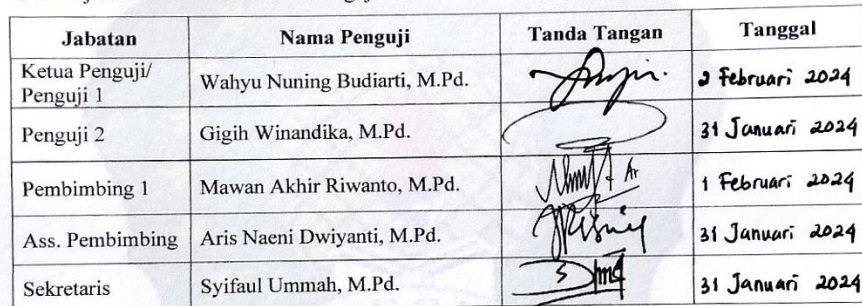 Jabatan Nama Penguji Tanda Tangan Tanggal
Ketua Penguji/
Penguji 1 Wahyu Nuning Budiarti, M.Pd. 2 Februari 2024
Penguji 2 Gigih Winandika, M.Pd. 31 Januari 2024
Pembimbing 1 Mawan Akhir Riwanto, M.Pd. 1 Februari 2024
Ass. Pembimbing Aris Naeni Dwiyanti, M.Pd. 31 Januari 2024
Sekretaris Syifaul Ummah, M.Pd. 31 Januari 2024